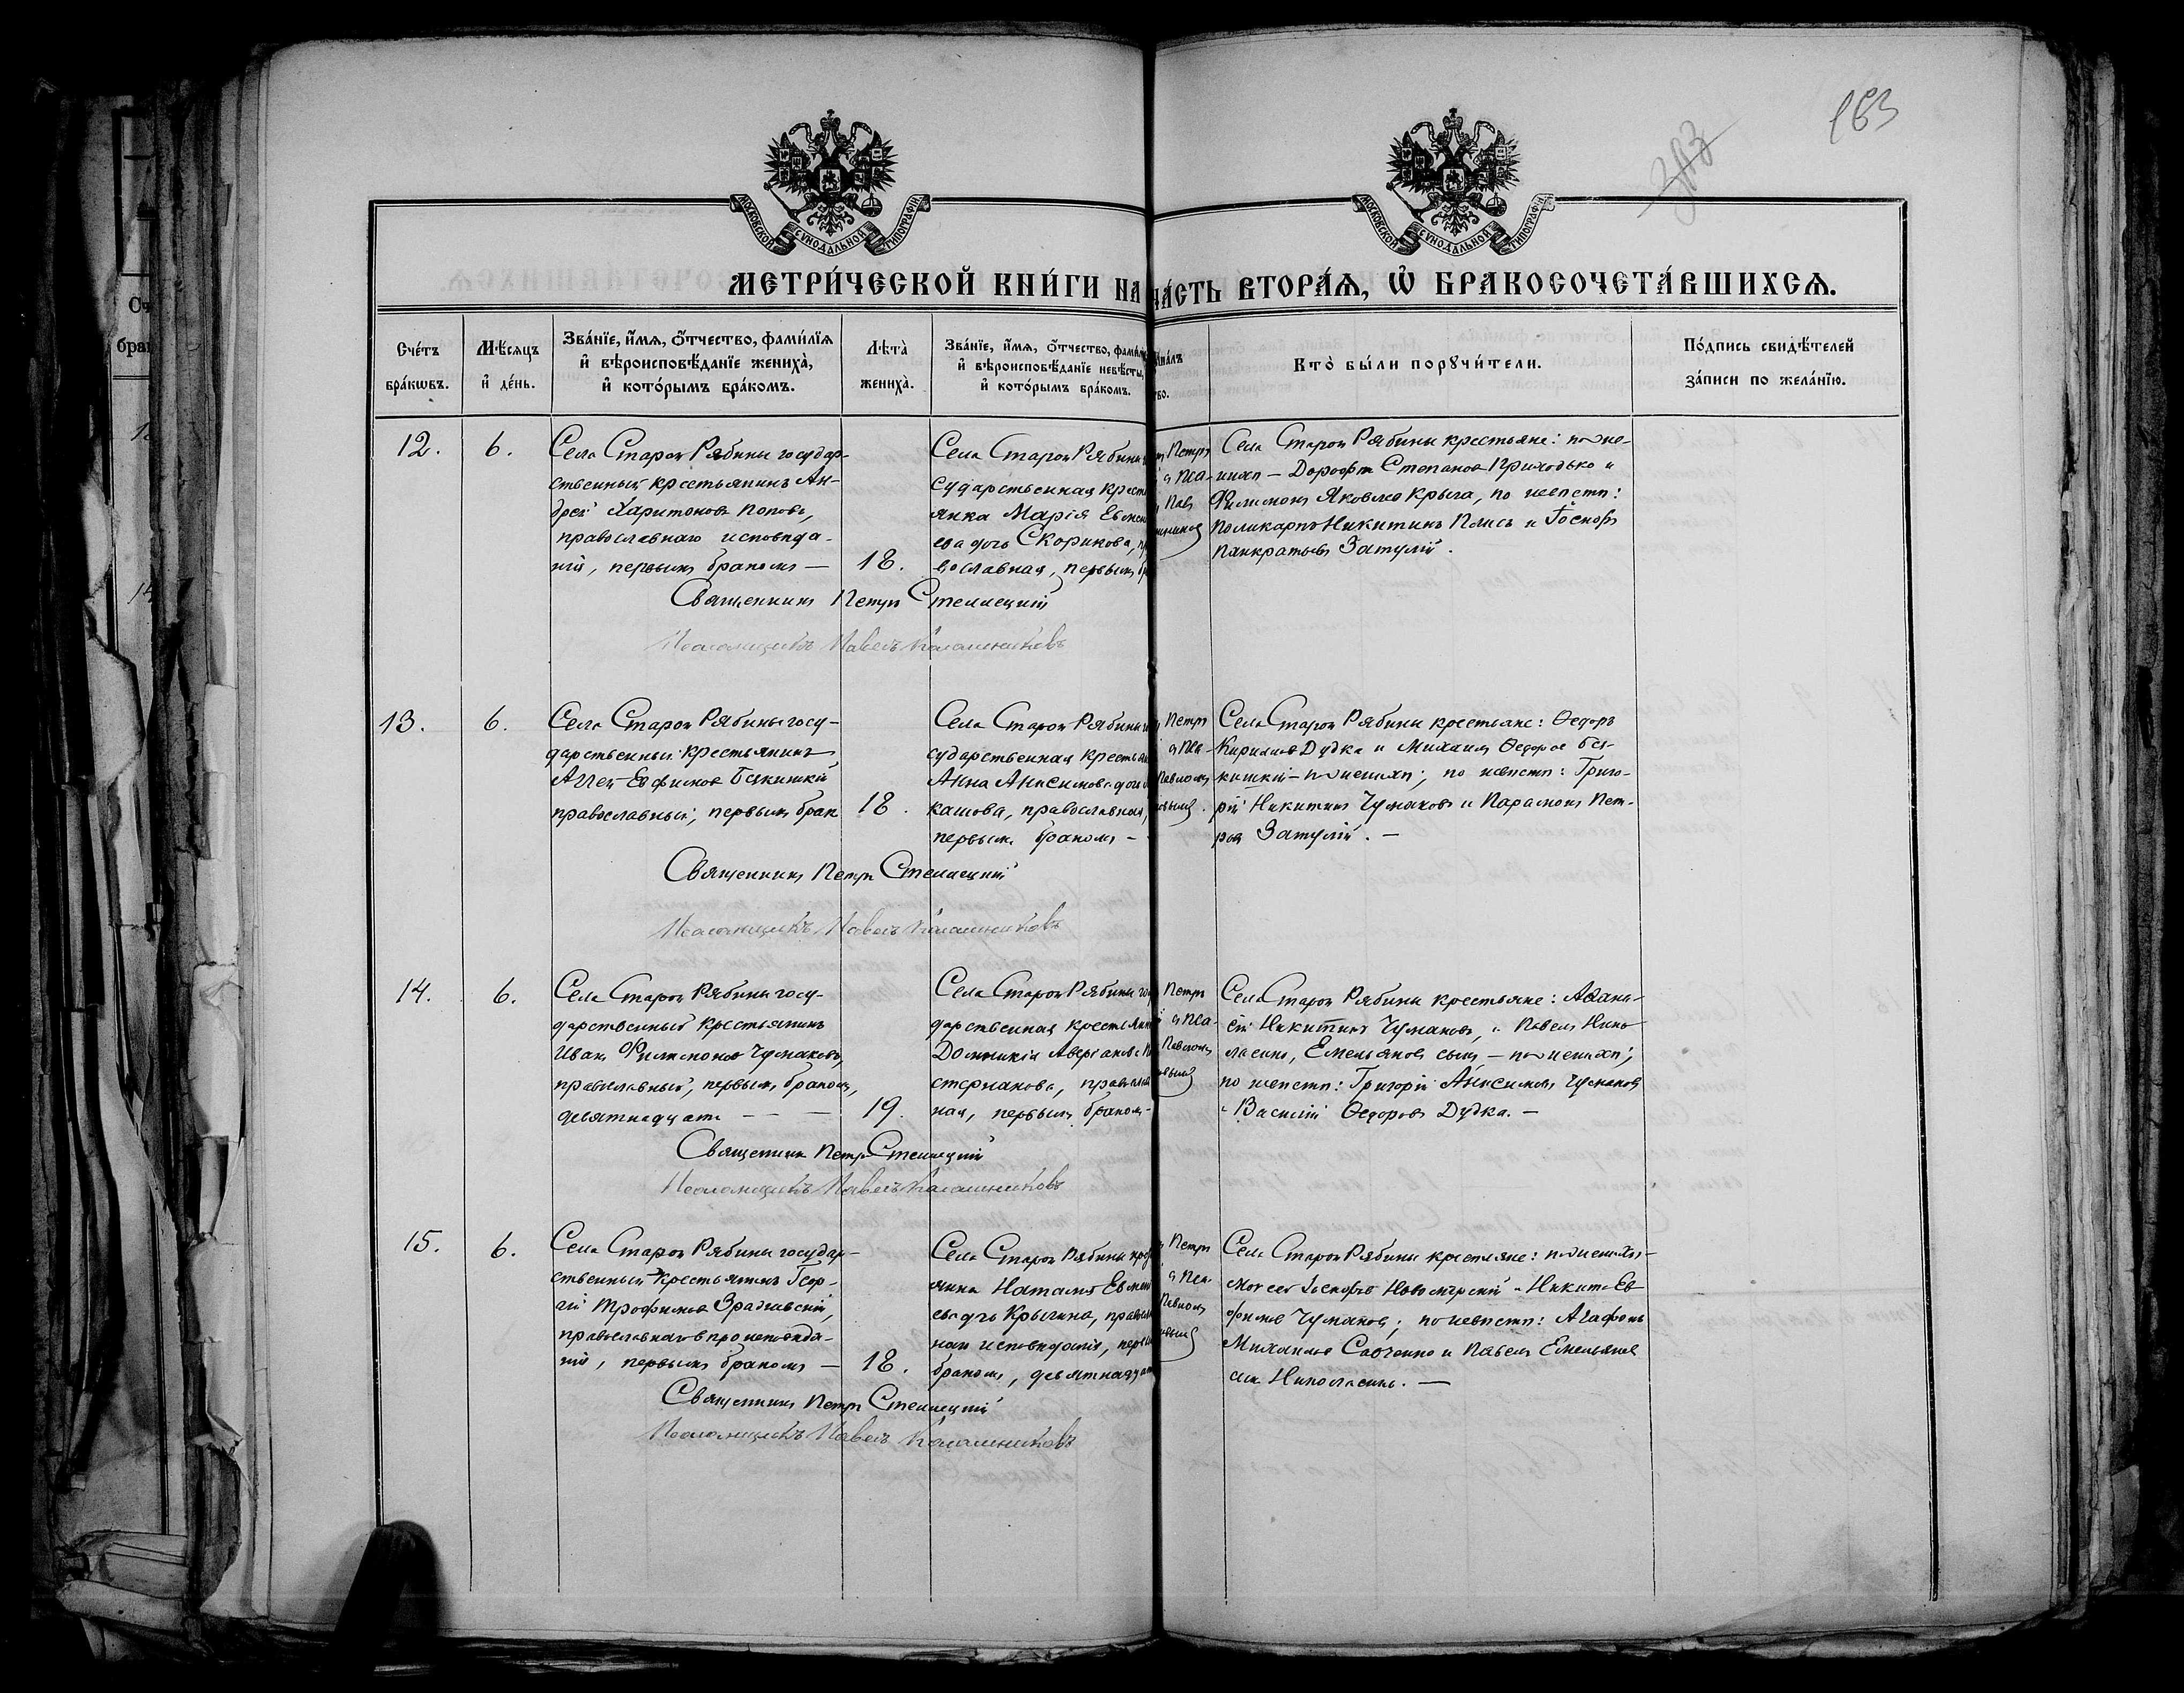 163
МОСКОВСКОЙ СУНОДАЛЬНОЙ ТИПОГРАФІИ
МОСКОВСКОЙ СУНОДАЛЬНОЙ ТИПОГРАФІИ
МЕТРИ́ЧЕСКОЙ КНИ́ГИ НА
ЧА́СТЬ ВТОРА́Ѧ, Ѡ҆ БРАКОСОЧЕТА́ВШИХСѦ.
Сче́тъ
бра́кѡвъ.
Мѣ́сяцъ
и҆ де́нь.
Зва́нїе, и҆́мѧ, ѻ҆́тчество, фами́лїѧ
и҆ вѣроисповѣ́данїе жениха̀,
и҆ кото́рымъ бра́комъ.
Лѣта̀
жениха̀.
Зва́нїе, и҆́мѧ, ѻ҆́тчество,
и҆ вѣроисповѣ́данїе невѣ́сты,
и҆ кото́рымъ бра́комъ.
Кто̀ бы́ли порꙋчи́тели.
По́дпись свидѣ́телей
за́писи по жела́нїю.
12.
6.
Села Старой Рябины государ-
ственный крестьянинъ Ан-
дрей Харитоновъ Поповъ,
православнаго исповѣда-
нія, первымъ бракомъ —
18.
Села Старой Рябины
сударственная крест
янка Марія
ева дочь Скорикова,
вославная, первымъ
Петръ
и Пса-
Села Старой Рябины крестьяне: по же-
нихѣ — Дорофей Степановъ Приходько и
Филимонъ Яковлевъ Крыга, по невѣстѣ:
Поликарпъ Никитинъ Плисъ и Іосифъ
Панкратьевъ Затулій.
Священникъ Петръ Стеллецкій
Псаломщикъ Павелъ Калашниковъ
13.
6.
Села Старой Рябины госу-
дарственный крестьянинъ
Евфимовъ
православный, первымъ брак
18.
Села Старой Рябины
сударственная крестьян
Анна Анисимова дочь
кашова, православная,
первымъ бракомъ —
Петръ
и Пса-
Павломъ
Села Старой Рябины крестьяне: Ѳедоръ
Кириловъ Дудка и Михаилъ Ѳедоровъ
по женихѣ; по невѣстѣ: Григо-
рій Никитинъ Чумаковъ и Парамонъ Пет-
ровъ Затулій. —
Священникъ Петръ Стеллецкій
Псаломщикъ Павелъ Калашниковъ
14.
6.
Села Старой Рябины госу-
дарственный крестьянинъ
Иванъ Филимоновъ Чумаковъ,
православный, первымъ бракомъ,
девятнадцати — — —
19.
Села Старой Рябины го
дарственная крестьян
Домникія Аверіанова
стернакова, православ
ная, первымъ бракомъ —
Петръ
и Пса-
Павломъ
Села Старой Рябины крестьяне: Аѳана-
сій Никитинъ Чумаковъ, и Павелъ Нико-
лаенко, Емельяновъ сынъ — по женихѣ;
по невѣстѣ: Григорій Анисимовъ Чумаковъ
и Василій Ѳедоровъ Дудка. —
Священникъ Петръ Стеллецкій
Псаломщикъ Павелъ Калашниковъ
15.
6.
Села Старой Рябины государ-
ственный крестьянинъ Геор-
гій Трофимовъ
православнаго вѣроисповѣда-
нія, первымъ бракомъ —
18.
Села Старой Рябины
янка Наталія
ева дочь Крыгина,
ная исповѣданія,
бракомъ, девятнадцат
Петръ
и Пса-
Павломъ
Села Старой Рябины крестьяне: по женихѣ —
Моисей Іосифовъ и Никита Ев-
фимовъ Чумаковъ; по невѣстѣ: Агафонъ
Михаиловъ Савченко и Павелъ Емельяновъ
сынъ Николаенко. —
Священникъ Петръ Стеллецкій
Псаломщикъ Павелъ Калашниковъ